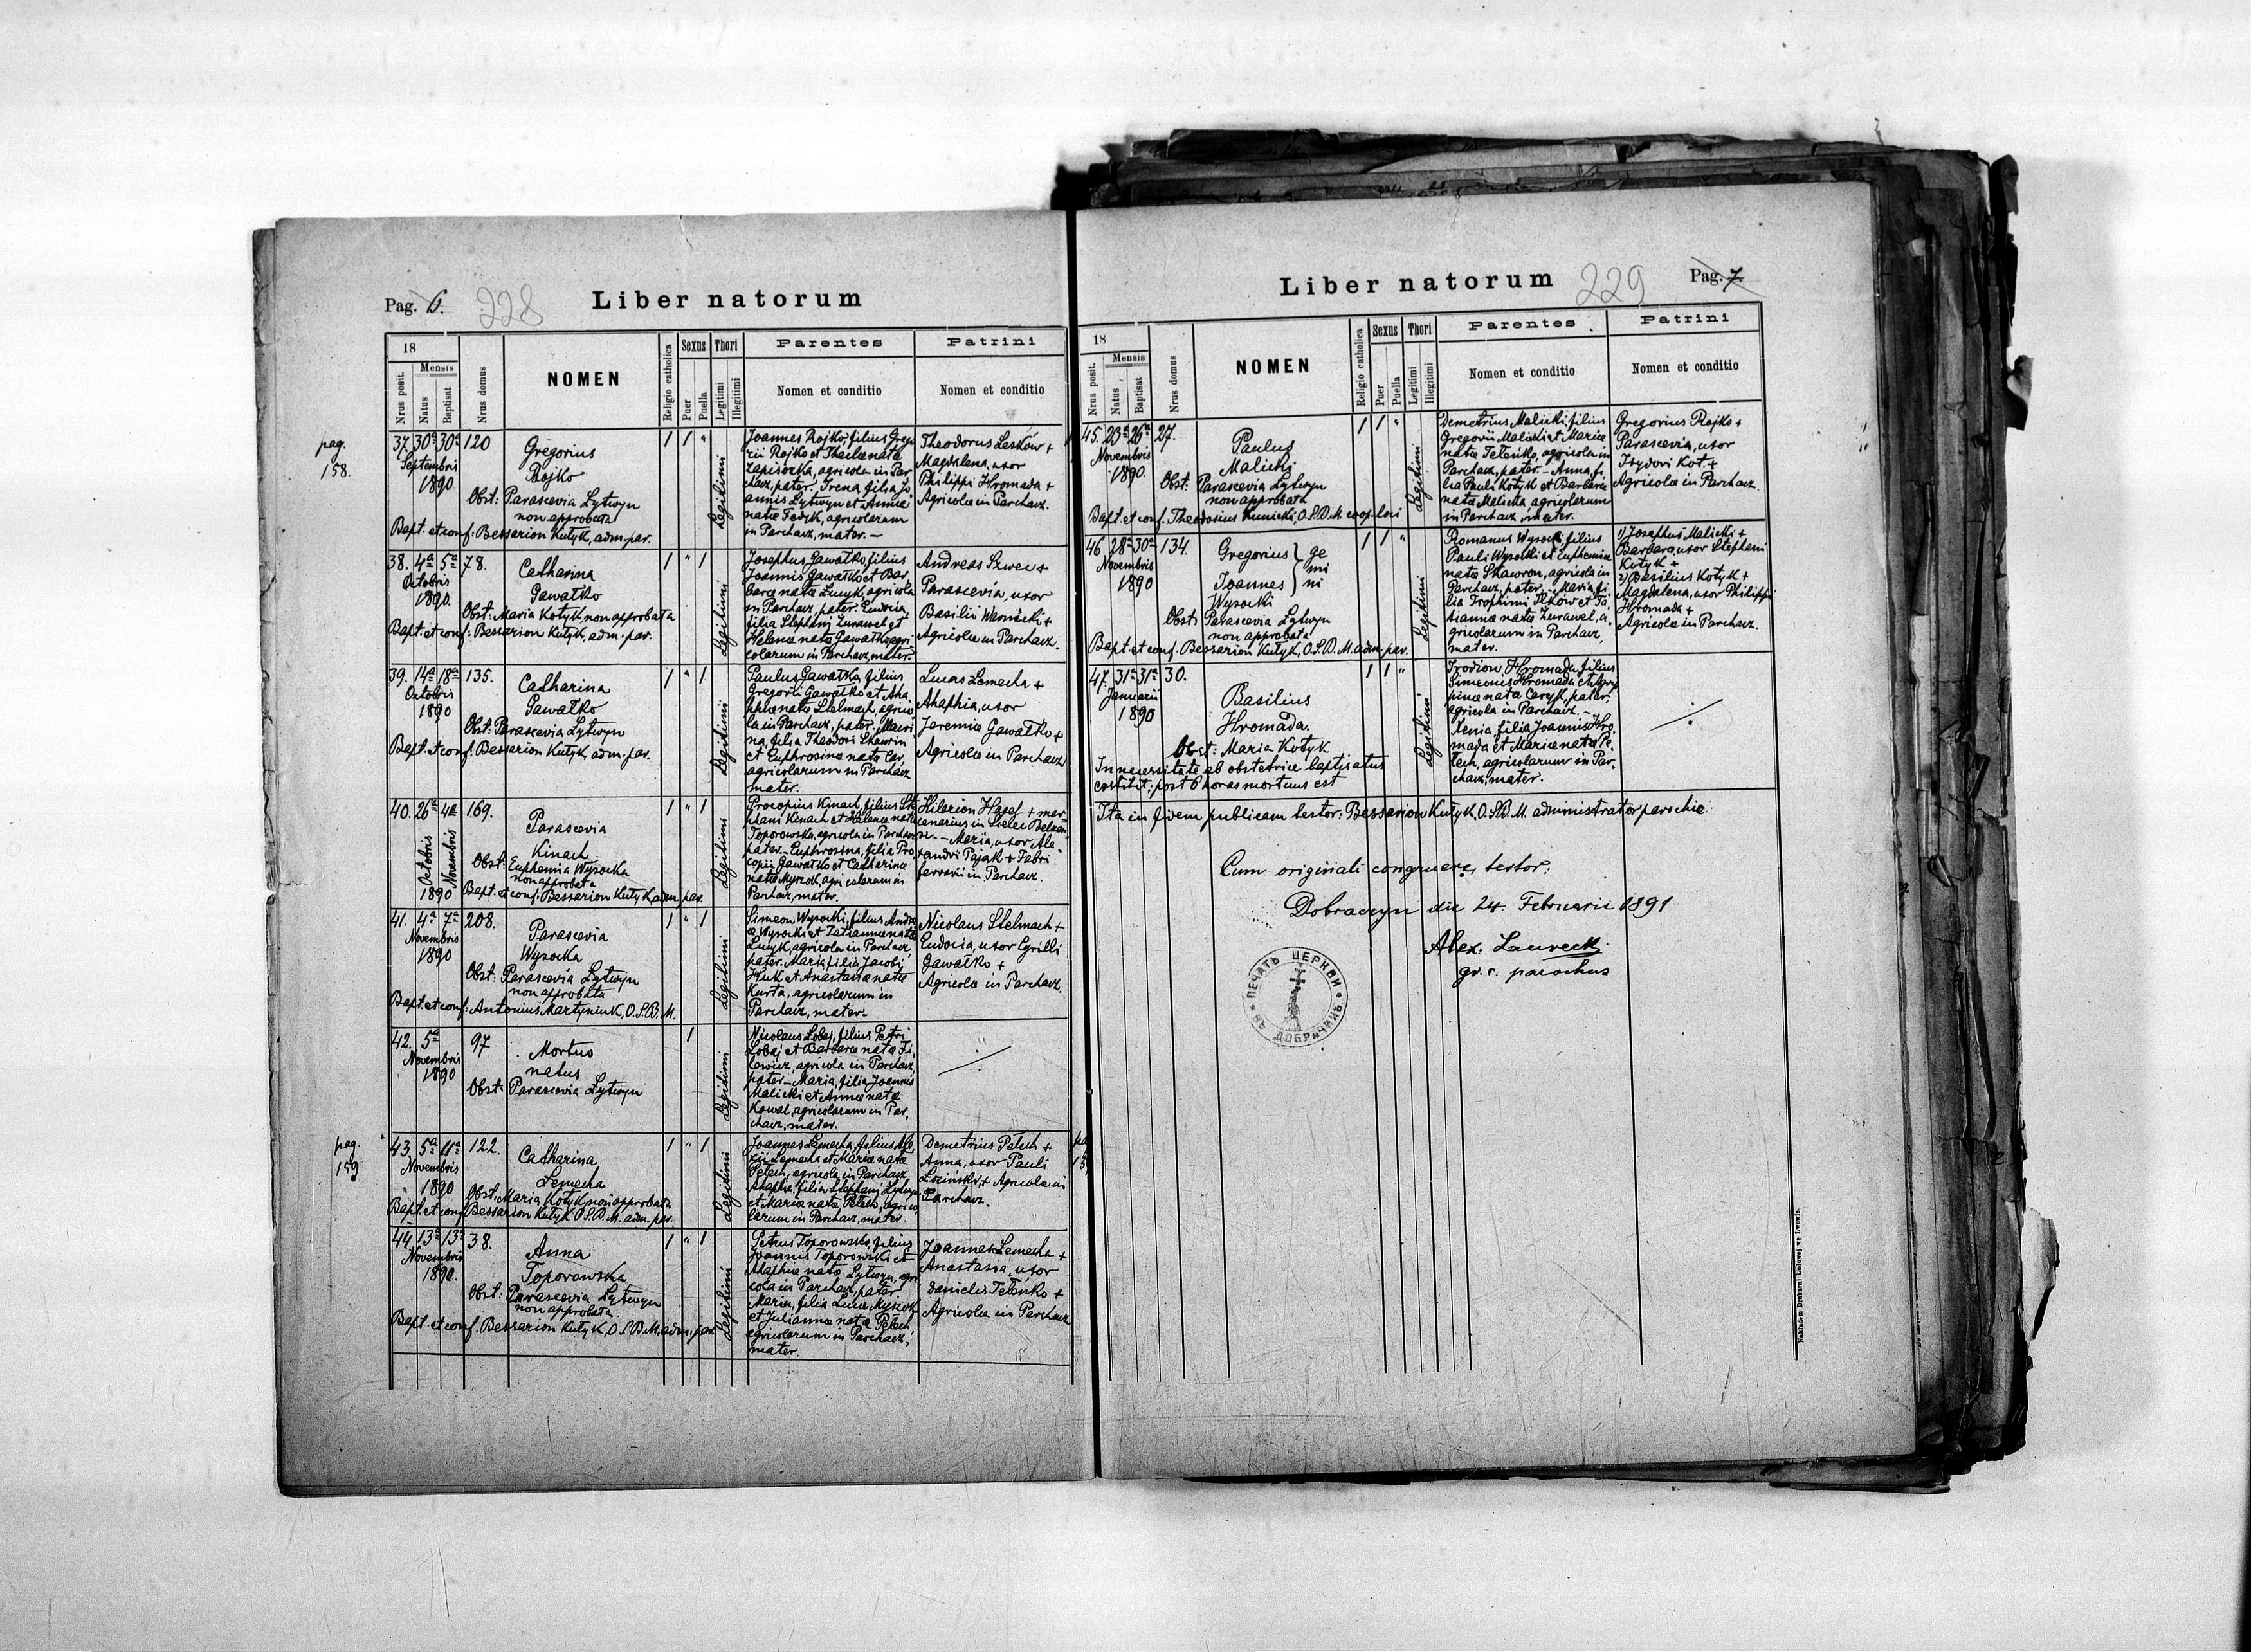 Pag. 6.
228
Liber natorum
18
Mensis
Nrus posit.
Natus
Baptisat
Nrus domus
NOMEN
Religio catholica
Sexus
Puer
Puella
Thori
Legitimi
Illegitimi
Parentes
Nomen et conditio
Patrini
Nomen et conditio
pag.
158.
37. 30a 30a 120
Septembris
1890
Gregorius
Rojko
Obst: Parascevia Lytwyn
non approbata
Bapt. et conf: Bessarion Kutyk, adm. par.
Legitimi
Joannes Rojko, filius Grego
rii Rojko et Theclae nata
Zapisocka, agricola in Par
chacz, pater. Irena, filia Jo
annis Lytwyn et Annae
nata Fedyk, agricolarum
in Parchacz, mater. –
Theodorus Leskow +
Magdalena, uxor
Philippi Hromada +
Agricolae in Parchacz.
38. 4a 5a 78.
Octobris
1890.
Catharina
Gawałko
Obst: Maria Kotyk non approbata
Bapt. et conf: Bessarion Kutyk, adm. par.
Legitimi
Josephus Gawałko, filius
Joannis Gawałko et Bar
bara nata Lucyk, agricola
in Parchacz, pater. Eudocia,
filia Stephani Zurawel et
Helenae nata Gawałko agri
colarum in Parchacz, mater.
Andreas Szwec +
Parascevia, uxor
Basilii Warnicki +
Agricolae in Parchacz.
39. 14a 18a 135.
Octobris
1890
Catharina
Gawałko
Obst: Parascevia Lytwyn
Bapt. et conf: Bessarion Kutyk, adm. par.
Legitimi
Paulus Gawałko, filius
Gregorii Gawałko et Aha
phiae nata Stelmach, agrico
la in Parchacz, pater. Mari
na, filia Theodori Skawrin
et Euphrosinae nata Car,
agricolarum in Parchacz
mater.
Lucas Lemecha +
Ahaphia, uxor
Jeremiae Gawałko +
Agricolae in Parchacz
40. 26a 4a 169.
Octobris
Novembris
1890
Parascevia
Kinach
Obst: Euphemia Wysocka
non approbata
Bapt. et conf: Bessarion Kutyk, adm. par.
Legitimi
Procopius Kinach, filius Ste
phani Kinach et Helenae nata
Toporowska, agricola in Parchacz
pater. – Euphrosina, filia Pro
copii Gawałko et Catharinae
nata Myszok, agricolarum in
Parchacz, mater.
Hilarion + mer
cenarius in
Maria, uxor Ale
xandri Pajak + Fabri
ferrarii in Parchacz.
41. 4a 7a 208.
Novembris
1890
Parascevia
Wysocka
Obst: Parascevia Lytwyn
non approbata
Bapt. et conf: Antonius Martyniuk, O.S.B.M.
Legitimi
Simeon Wysocki, filius Andre
ae Wysocki et Tatiannae nata
Lucyk, agricola in Parchacz,
pater. Maria, filia Jacobi
Huk et Anastasia nata
Kurta, agricolarum in
Parchacz, mater.
Nicolaus Stelmach +
Eudocia, uxor Cyrilli
Gawałko +
Agricolae in Parchacz.
42. 5a 97
Novembris
1890
Mortuo
natus
Obst: Parascevia Lytwyn
Legitimi
Nicolaus Lobaj, filius Petri
Lobaj et Barbarae nata Fi
lewicz, agricola in Parchacz,
pater – Maria, filia Joannis
Malicki et Annae nata
Kowal, agricolarum in Par
chacz, mater.
pag.
159
43. 5a 11a 122.
Novembris
1890
Catharina
Lemecha
Obst: Maria Kotyk non approbata
Bapt. et conf Bessarion Kutyk O.S.B.M. adm. par.
Legitimi
Joannes Lemecha, filius Ale
xii Lemecha et Mariae nata
Pelech, agricola in Parchacz
Ahaphia, filia Stephani Lytwyn
et Mariae nata Pelech, agrico
larum in Parchacz, mater.
Demetrius Pelech +
Anna, uxor Pauli
Łozinski + Agricolae in
Parchacz.
44. 13a 13a 38.
Novembris
1890.
Anna
Toporowska
Obst: Parascevia Lytwyn
non approbata
Bapt. et conf. Bessarion Kutyk, O.S.B.M. adm. par.
Legitimi
Petrus Toporowski, filius
Joannis Toporowski et
Ahaphiae nata Lytwyn, agri
cola in Parchacz, pater.
Maria, filia Lucae Myszok
et Juliannae nata Pelech
agricolarum in Parchacz,
mater.
Joannes Lemecha +
Anastasia, uxor
Danielis Telenko +
Agricolae in Parchacz
Liber natorum
229
Pag. 7.
18
Mensis
Nrus posit.
Natus
Baptisat
Nrus domus
NOMEN
Religio catholica
Sexus
Puer
Puella
Thori
Legitimi
Illegitimi
Parentes
Nomen et conditio
Patrini
Nomen et conditio
45. 25a 26a 27.
Novembris
1890.
Paulus
Malicki
Obst: Parascevia Lytwyn
non approbata
Bapt. et conf. Theodosius Kunicki, O.S.B.M. coop. loci
Legitimi
Demetrius Malicki, filius
Gregorii Malicki et Mariae
nata Telenko, agricola in
Parchacz, pater. – Anna, fi
lia Pauli Kotyk et Barbarae
nata Malicka agricolarum
in Parchacz, mater.
Gregorius Rojko +
Parascevia, uxor
Isydori Kot. +
Agricolae in Parchacz.
46. 28a 30a 134.
Novembris
1890
Gregorius } ge
mi
Joannes } ni
Wysocki
Obst: Parascevia Lytwyn
non approbata
Bapt. et conf. Bessarion Kutyk, O.S.B.M. adm. par.
Legitimi
Romanus Wysocki, filius
Pauli Wysocki et Euphemiae
nata Skawron, agricola in
Parchacz, pater. – Maria, fi
lia Trophimi Ilkow et Ta
tiannae nata Zurawel, a
gricolarum in Parchacz,
mater.
1) Josephus Malicki +
Barbara, uxor Stephani
Kotyk +
2) Basilius Kotyk +
Magdalena, uxor Philippi
Hromada +
Agricolae in Parchacz.
47. 31a 31a 30.
Januarii
1890
Basilius
Hromada.
Obst: Maria Kotyk
In necessitate ab obstetrice baptisatus
exstitit; post 6 horas mortuus est
Legitimi
Irodion Hromada, filius
Simeonis Hromada et Agry
pinae nata Caryk, pater,
agricola in Parchacz. –
Xenia, filia Joannis Hro
mada et Mariae nata Pe
lech, agricolarum in Par
chacz, mater.
Ita in fidem publicam testor: Bessarion Kutyk, O.S.B.M. administrator parochiae.
Cum originali congruere, testor:
Dobraczyn die 24. Februarii 1891
Alex. Lawrecki
gr. c. parochus
ПЕЧАТЬ ЦЕРКВИ
ВЪ ДОБРАЧИНѢ
Nakładem Drukarni Ludowej we Lwowie.